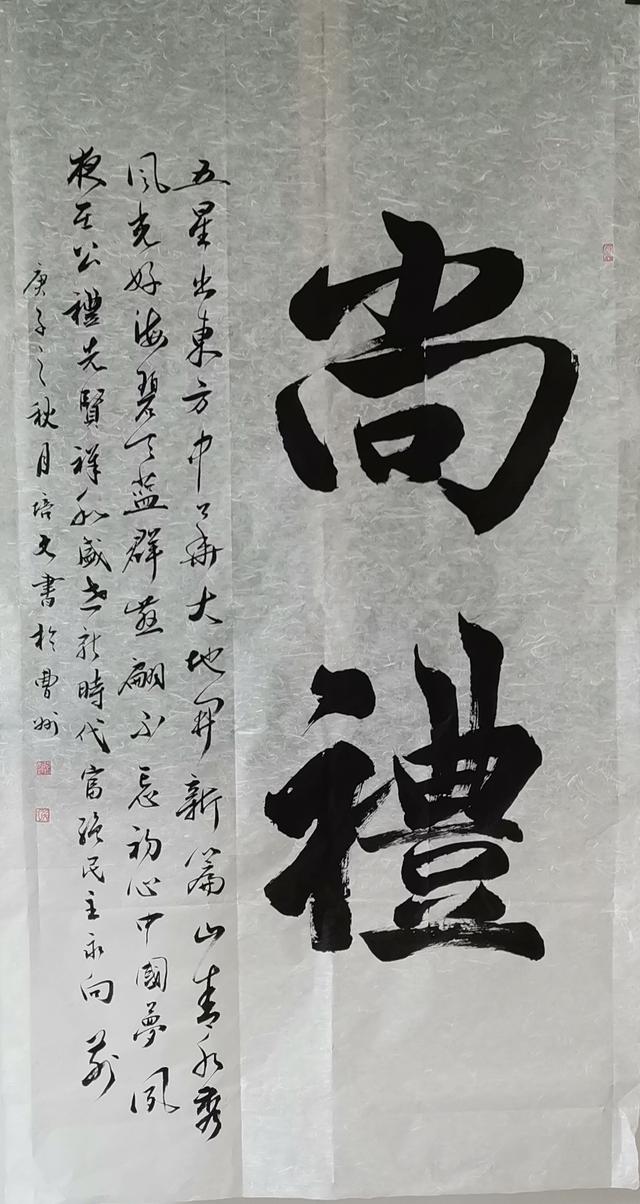 尚禮
五星出東方中華大地開新篇山青水秀
風光好海碧天藍群燕翩不忘初心中國夢夙
夜在公禮先賢祥和盛世新時代富強民主永向前
庚子之秋月培文書於曹州